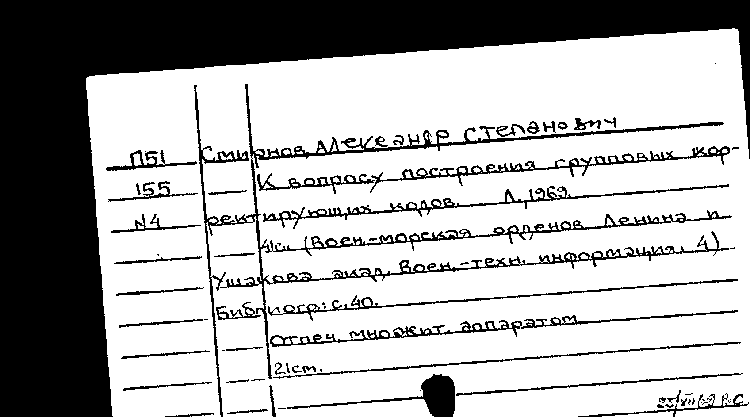 П51 Смирнов, Александр Степанович
155 К вопросу построения групповых кор-
N4 ректирующих кодов. Л., 1969.
41с. (Воен.-морская орденов Ленина и
Ушакова акад. Воен.-техн. информация, 4)
Библиогр.: с. 40.
Отпеч. множит. аппаратом
21cm.